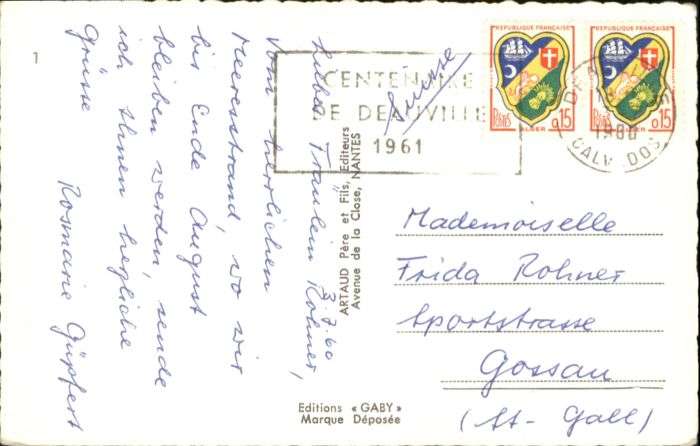 1
3.7.60
Liebe Fräulein Rohner,
Vom herrlichen
Meeresstrand, wo wir
bis Ende August
bleiben werden, sende
ich Ihnen herzliche
Grüsse
Rosmarie Güpfert
ARTAUD Père et Fils, Editeurs
Avenue de la Close, NANTES
Editions « GABY »
Marque Déposée
CENTENAIRE
DE DEAUVILLE
1961
Suisse
REPUBLIQUE FRANÇAISE
POSTES
0,15
ALGER
REPUBLIQUE FRANÇAISE
POSTES
0,15
ALGER
1960
CALVADOS
Mademoiselle
Frida Rohner
Sportstrasse
Gossau
(St-Gall)